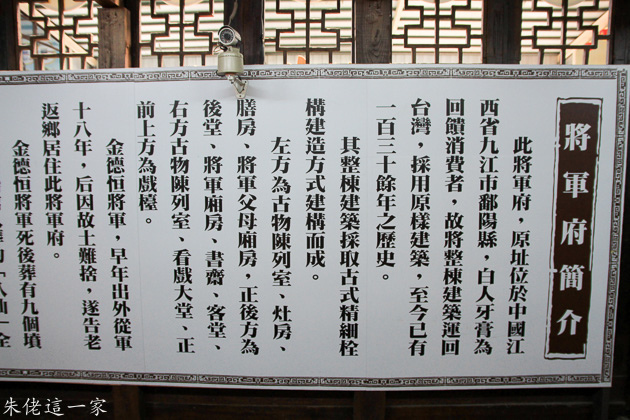 將軍府簡介
此將軍府，原址位於中國江
西省九江市鄱陽縣，白人牙膏為
回饋消費者，故將整棟建築運回
台灣，採用原樣建築，至今已有
一百三十餘年之歷史。
其整棟建築採取古式精細栓
構建造方式建構而成。
左方為古物陳列室、灶房、
膳房、將軍父母廂房，正後方為
後堂、將軍廂房、書齋、客堂、
右方古物陳列室、看戲大堂、正
前上方為戲檯。
金德恒將軍，早年出外從軍
十八年，后因故土難捨，遂告老
返鄉居住此將軍府。
金德恒將軍死後葬有九個墳
朱佬這一家